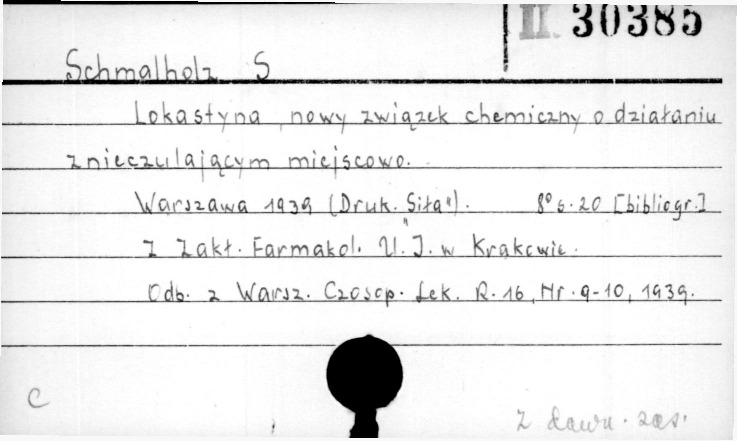 II 30385
Schmalholz S
Lokastyna, nowy związek chemiczny o działaniu
znieczulającym miejscowo.
Warszawa 1939 (Druk. „Siła"). 8° s. 20 [bibliogr.]
Z Zakł. Farmakol. U. J. w Krakowie.
Odb. z Warsz. Czosop. Lek. R. 16, Nr. 9-10, 1939.
C
Z dawn. zas.